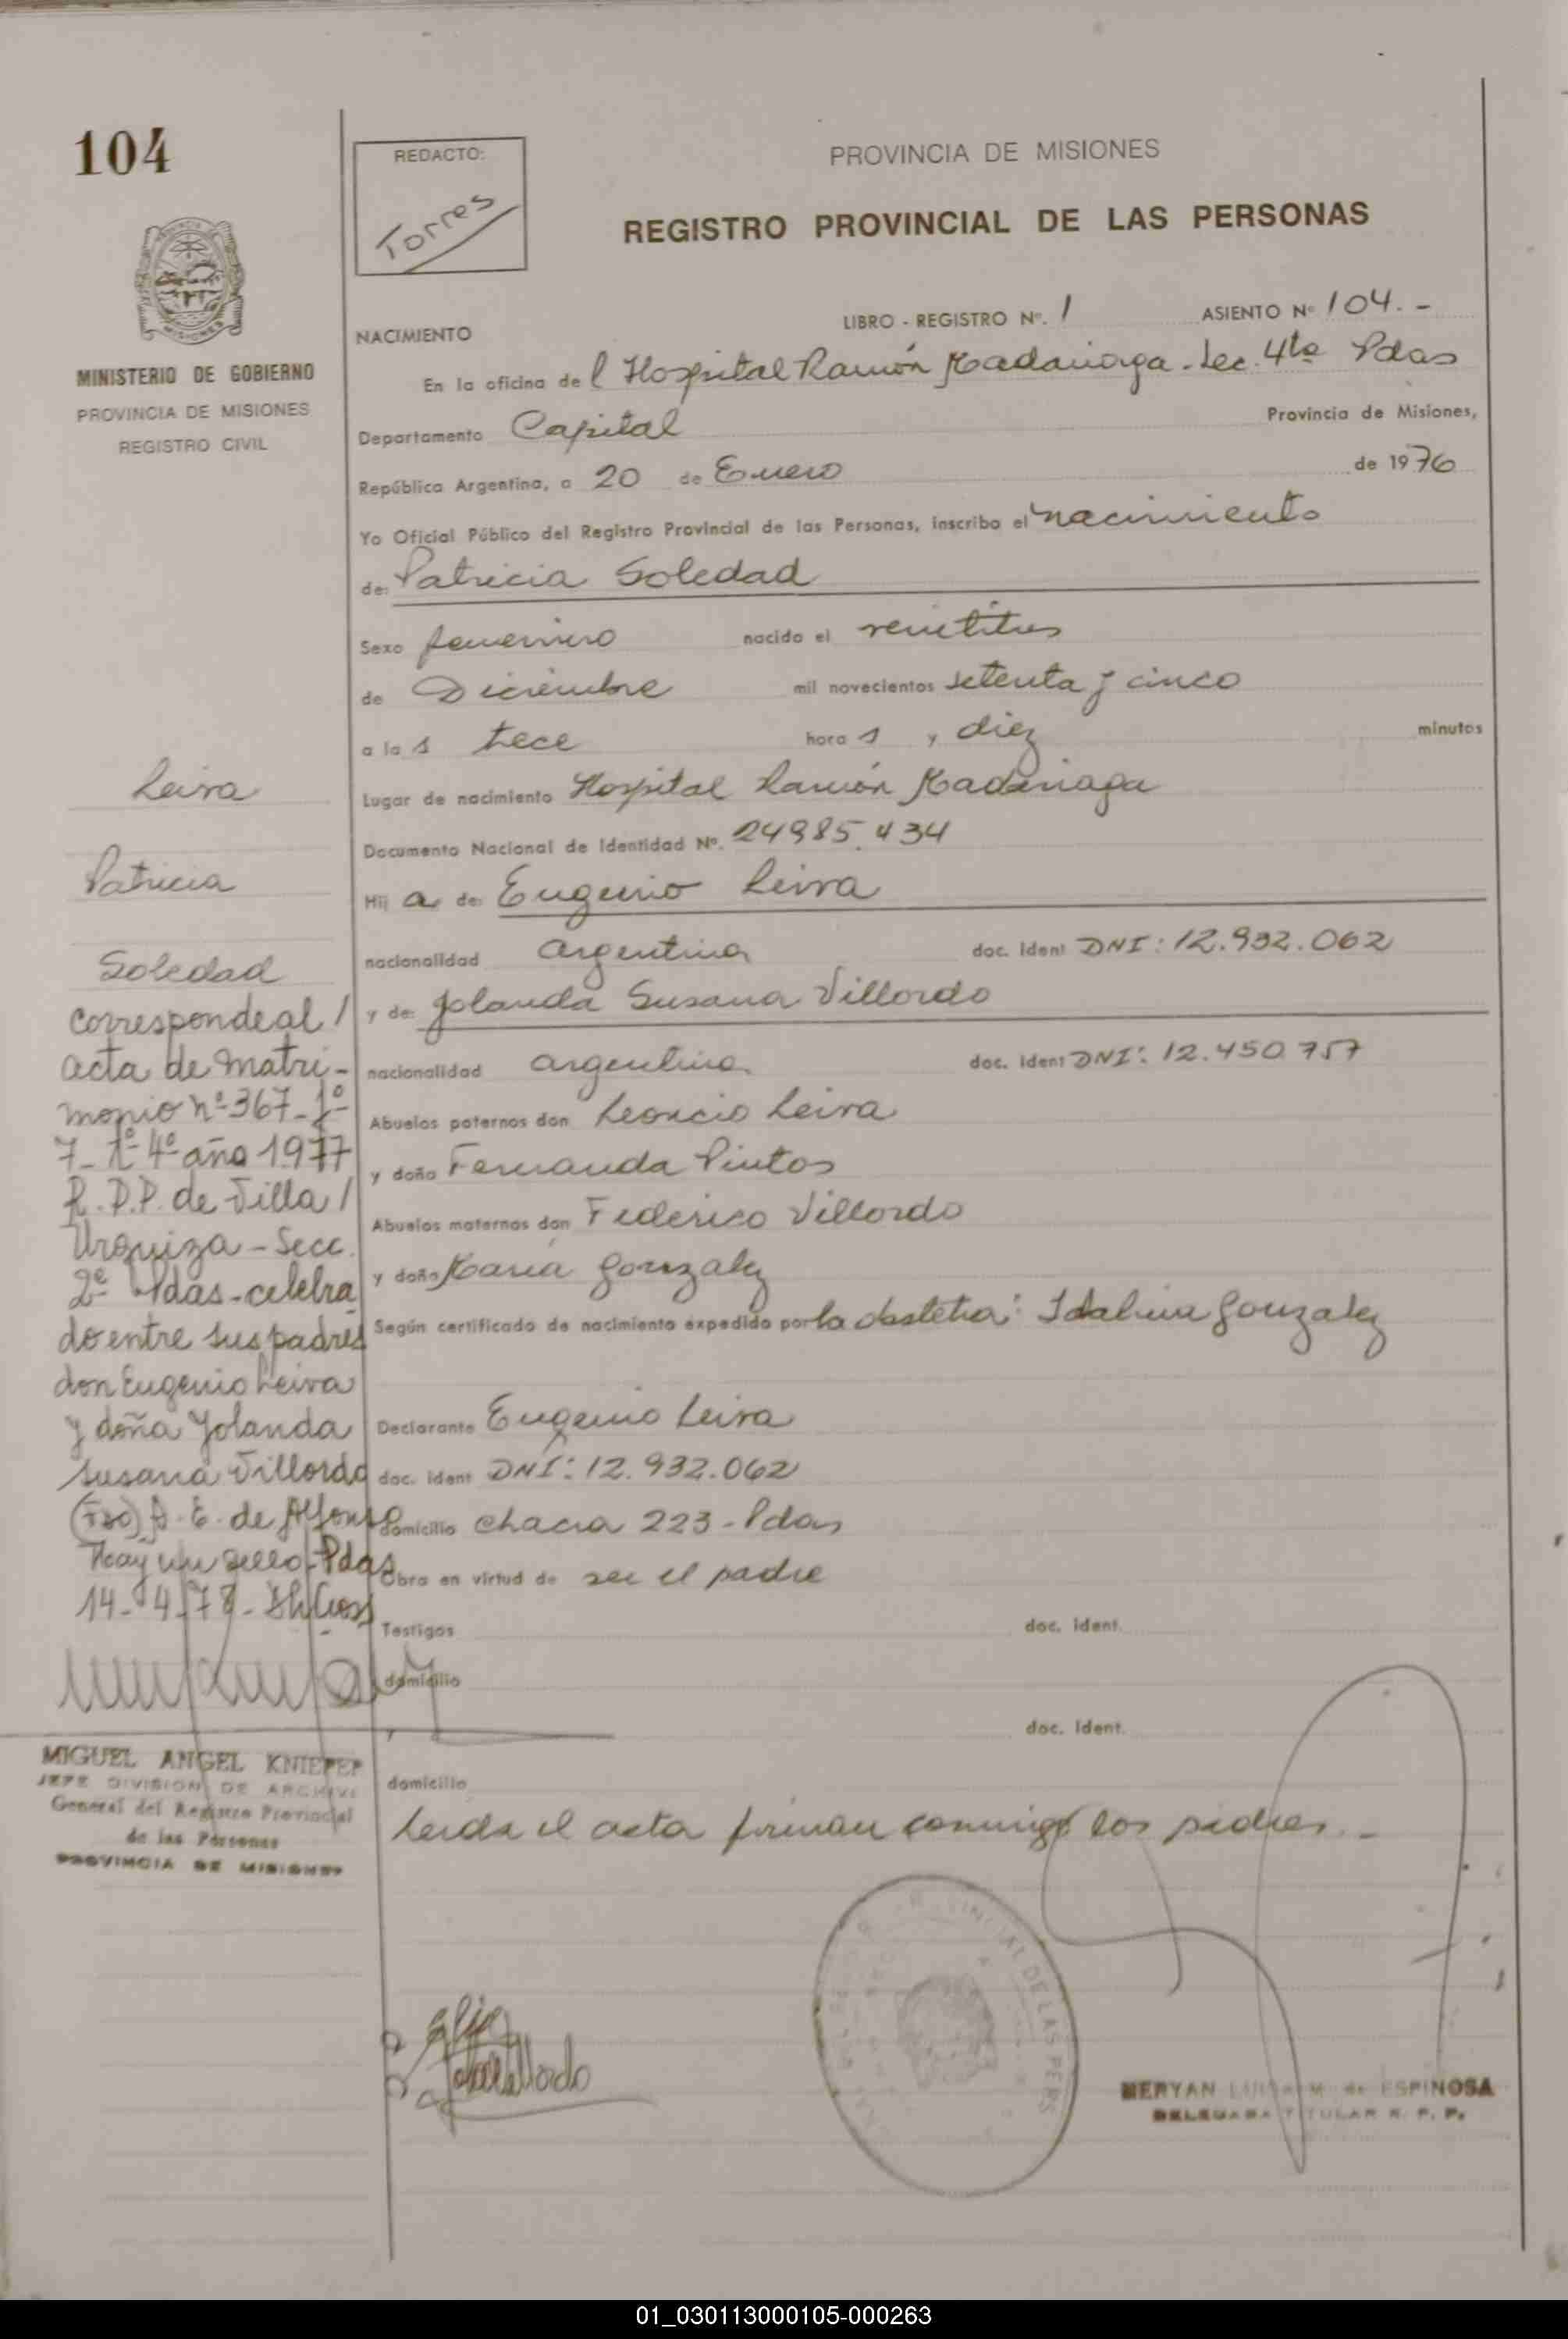 104
REDACTO:
Torres
PROVINCIA DE MISIONES
REGISTRO PROVINCIAL DE LAS PERSONAS
MINISTERIO DE GOBIERNO
PROVINCIA DE MISIONES
REGISTRO CIVIL
NACIMIENTO LIBRO - REGISTRO Nº. 1 ASIENTO Nº 104. -
En la oficina del Hospital Ramón Madariaga - Sec. 4ta Pdas
Departamento Capital Provincia de Misiones,
República Argentina, a 20 de Enero de 1976
Yo Oficial Público del Registro Provincial de las Personas, inscribo el nacimiento
de: Patricia Soledad
Sexo femenino nacido el veintitres
de Diciembre mil novecientos setenta y cinco
a las trece horas y diez minutos
Lugar de nacimiento Hospital Ramón Madariaga
Documento Nacional de Identidad Nº. 24985.434
Hija de: Eugenio Leiva
nacionalidad argentina doc. Ident DNI: 12.932.062
y de: Yolanda Susana Villordo
nacionalidad argentina doc. Ident DNI: 12.450.757
Abuelos paternos don Leoncio Leiva
y doña Fernanda Pintos
Abuelos maternos don Federico Villordo
y doña Maria Gonzalez
Según certificado de nacimiento expedido por la obstetra: Idalina Gonzalez
Declarante Eugenio Leiva
doc. ident DNI: 12.932.062
domicilio chacra 223 - Pdas
Obra en virtud de ser el padre
Testigos doc. ident.
domicilio
y doc. Ident.
domicilio
Leida el acta firman conmigo los padres. -
Leiva
Patricia
Soledad
Corresponde al /
acta de matri-
monio nº 367 - Iº
7 - 1º 4º año 1977
R.P.P. de Villa /
Urquiza - Secc.
2º Pdas - celebra
do entre sus padres
don Eugenio Leiva
y doña Yolanda
Susana Villordo
(Fdo) A. E. de Alfonso
Hay un sello - Pdas
14-4-78 -
MIGUEL ANGEL KNIEPER
JEFE DIVISION DE ARCHIVO
General del Registro Provincial
de las Personas
PROVINCIA DE MISIONES
Villordo
PROVINCIAL DE LAS PERS
MERYAN LUISA M. de ESPINOSA
DELEGADA TITULAR R. P. P.
01_030113000105-000263